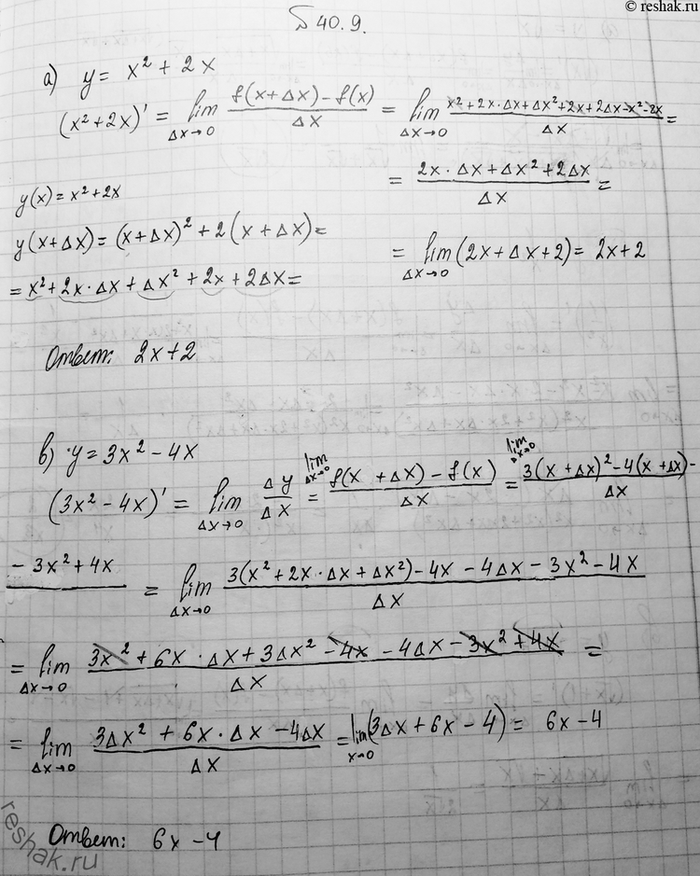 © reshak.ru
№ 40.9.
а) y = x² + 2x
(x²+2x)' = lim Δx→0 f(x+Δx)−f(x) / Δx = lim Δx→0 x²+2x·Δx+Δx²+2x+2Δx−x²−2x / Δx =
= 2x·Δx+Δx²+2Δx / Δx =
= lim Δx→0 (2x+Δx+2) = 2x+2
y(x) = x²+2x
y(x+Δx) = (x+Δx)²+2(x+Δx) =
= x²+2x·Δx+Δx²+2x+2Δx =
Ответ: 2x+2
в) y = 3x²−4x
(3x²−4x)' = lim Δx→0 Δy / Δx = lim Δx→0 f(x+Δx)−f(x) / Δx = lim Δx→0 3(x+Δx)²−4(x+Δx)− / Δx
−3x²+4x = lim Δx→0 3(x²+2x·Δx+Δx²)−4x−4Δx−3x²−4x / Δx
= lim Δx→0 3x²+6x·Δx+3Δx²−4x−4Δx−3x²+4x / Δx =
= lim Δx→0 3Δx²+6x·Δx−4Δx / Δx = lim x→0 (3Δx+6x−4) = 6x−4
Ответ: 6x−4
reshak.ru